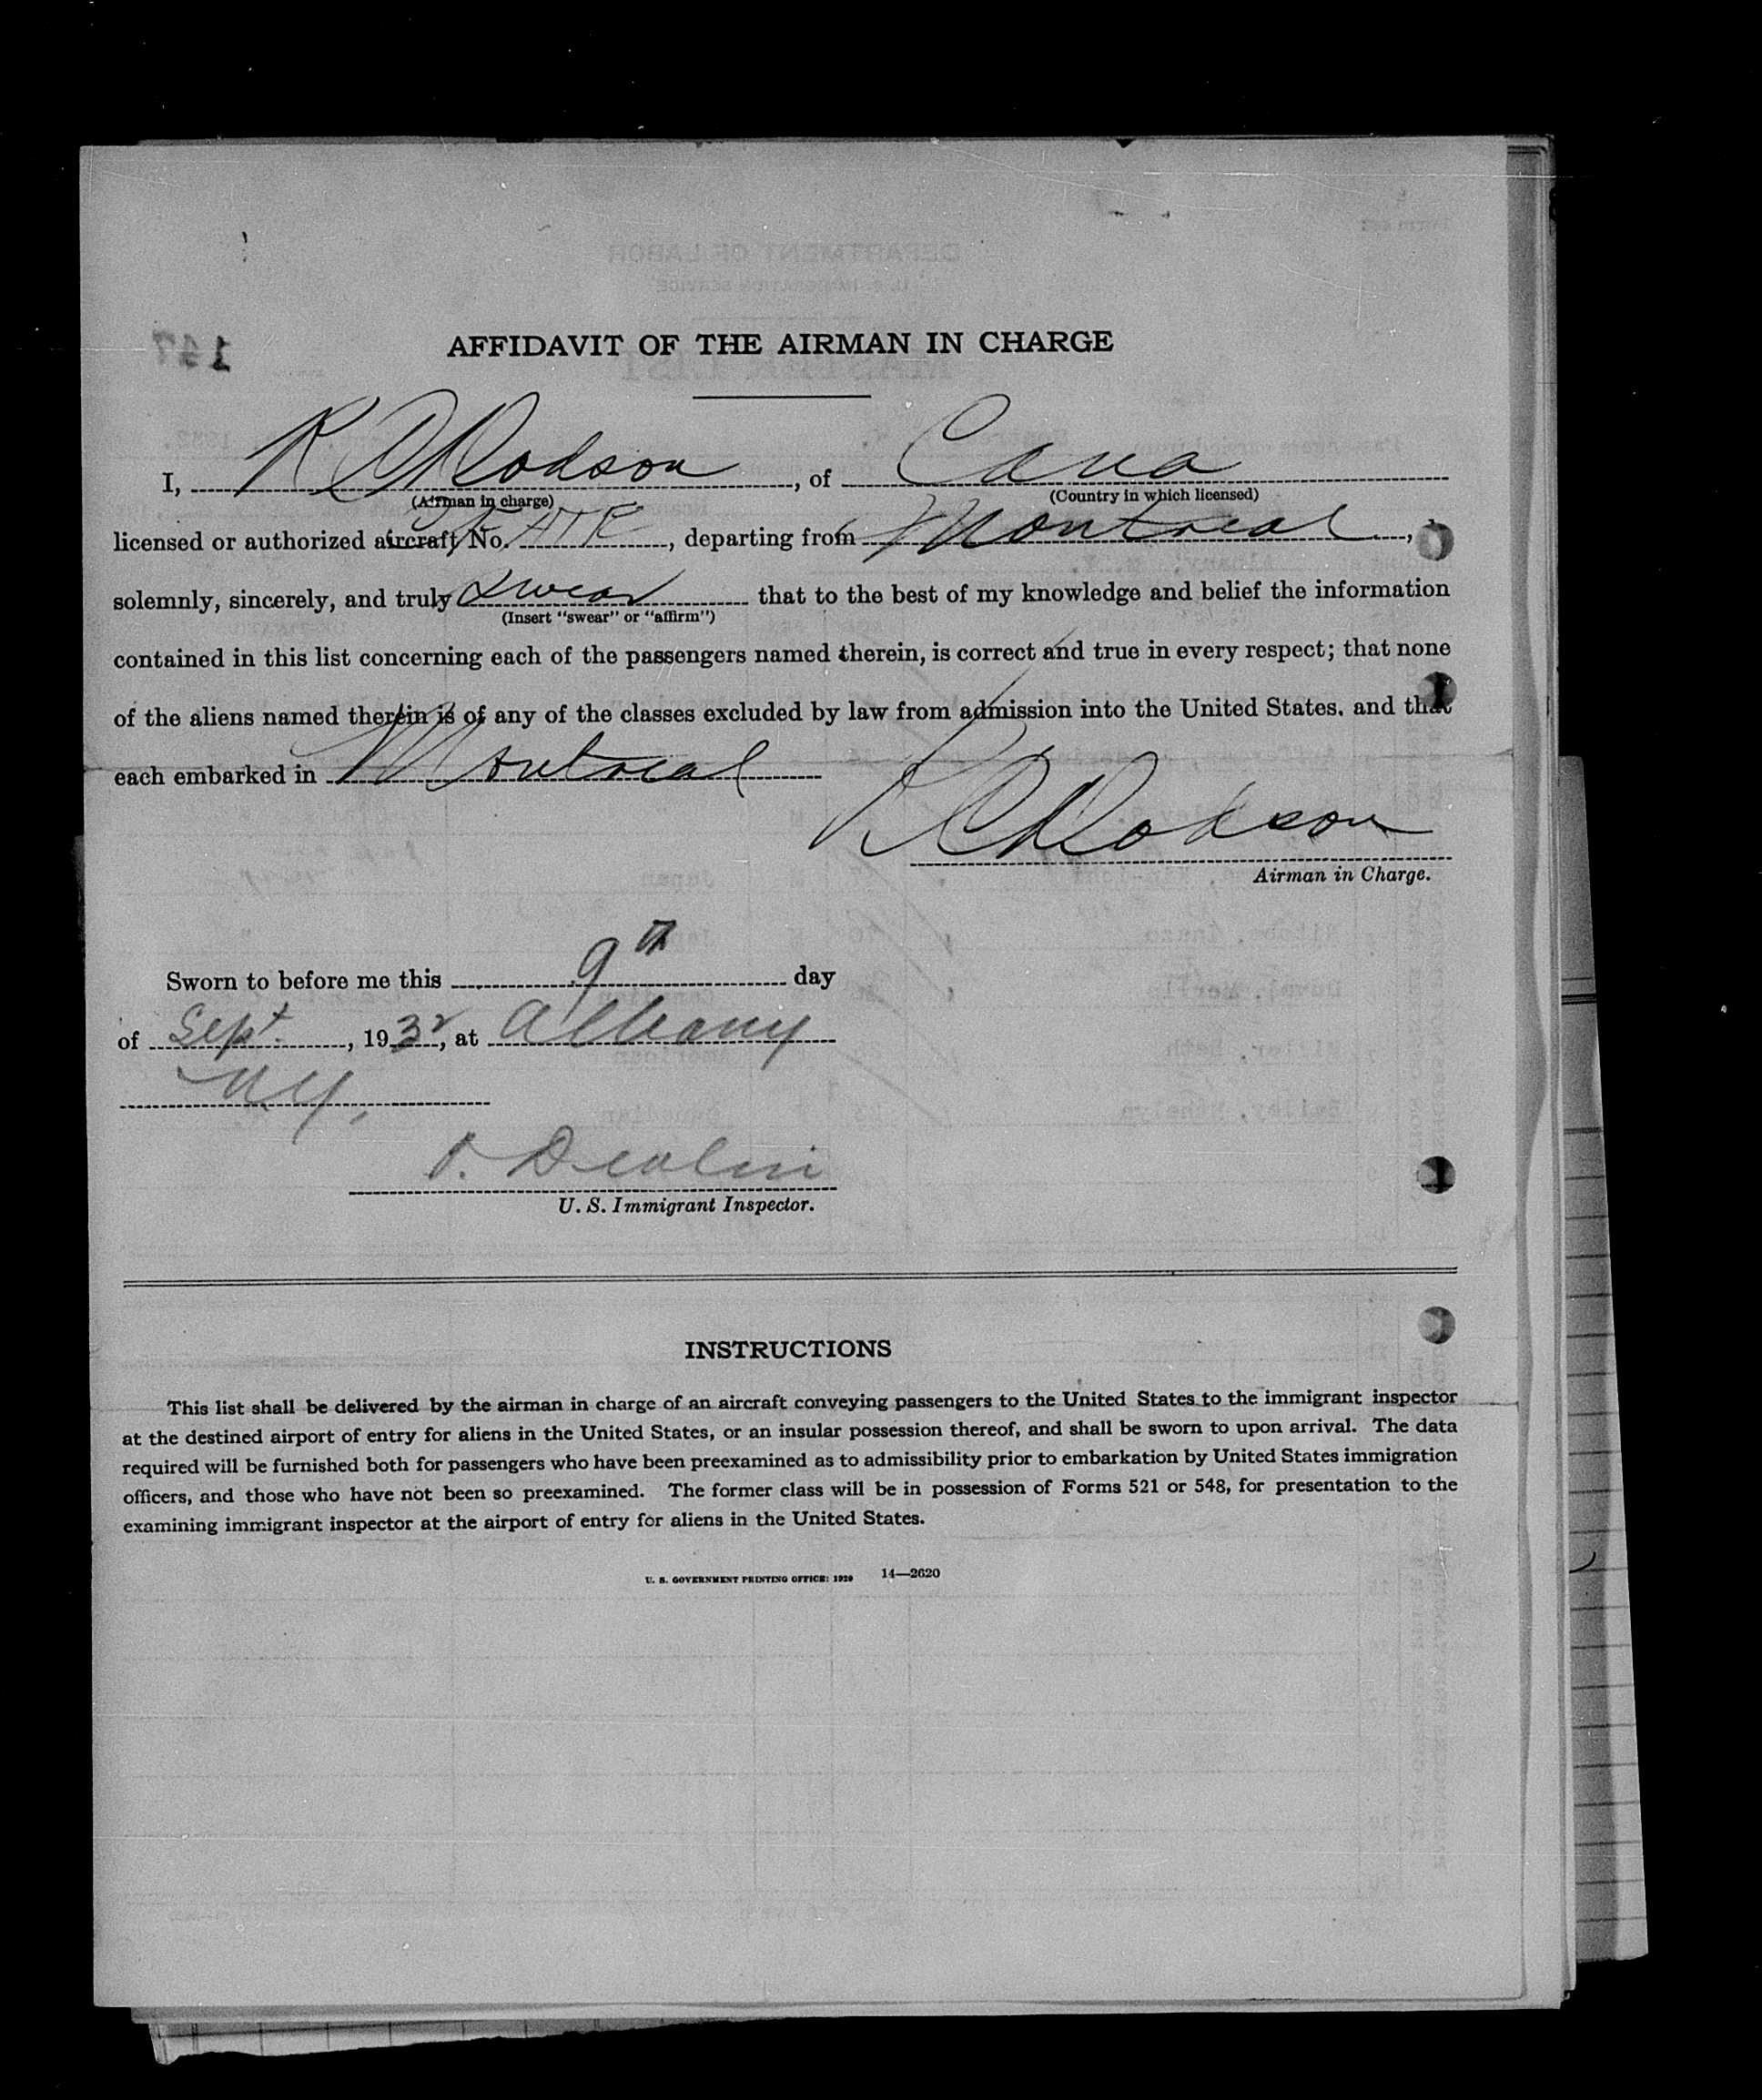 AFFIDAVIT OF THE AIRMAN IN CHARGE
I, R C Dodson, of Cana
(Airman in charge) (Country in which licensed)
licensed or authorized aircraft No. CF ATR, departing from Montreal,
solemnly, sincerely, and truly swear that to the best of my knowledge and belief the information
(Insert "swear" or "affirm")
contained in this list concerning each of the passengers named therein, is correct and true in every respect; that none
of the aliens named therein is of any of the classes excluded by law from admission into the United States. and that
each embarked in Montreal
R C Dodson
Airman in Charge.
Sworn to before me this 9th day
of Sept., 1932, at Albany
N.Y.
U. S. Immigrant Inspector.
INSTRUCTIONS
This list shall be delivered by the airman in charge of an aircraft conveying passengers to the United States to the immigrant inspector
at the destined airport of entry for aliens in the United States, or an insular possession thereof, and shall be sworn to upon arrival. The data
required will be furnished both for passengers who have been preexamined as to admissibility prior to embarkation by United States immigration
officers, and those who have not been so preexamined. The former class will be in possession of Forms 521 or 548, for presentation to the
examining immigrant inspector at the airport of entry for aliens in the United States.
U. S. GOVERNMENT PRINTING OFFICE: 1929 14—2620